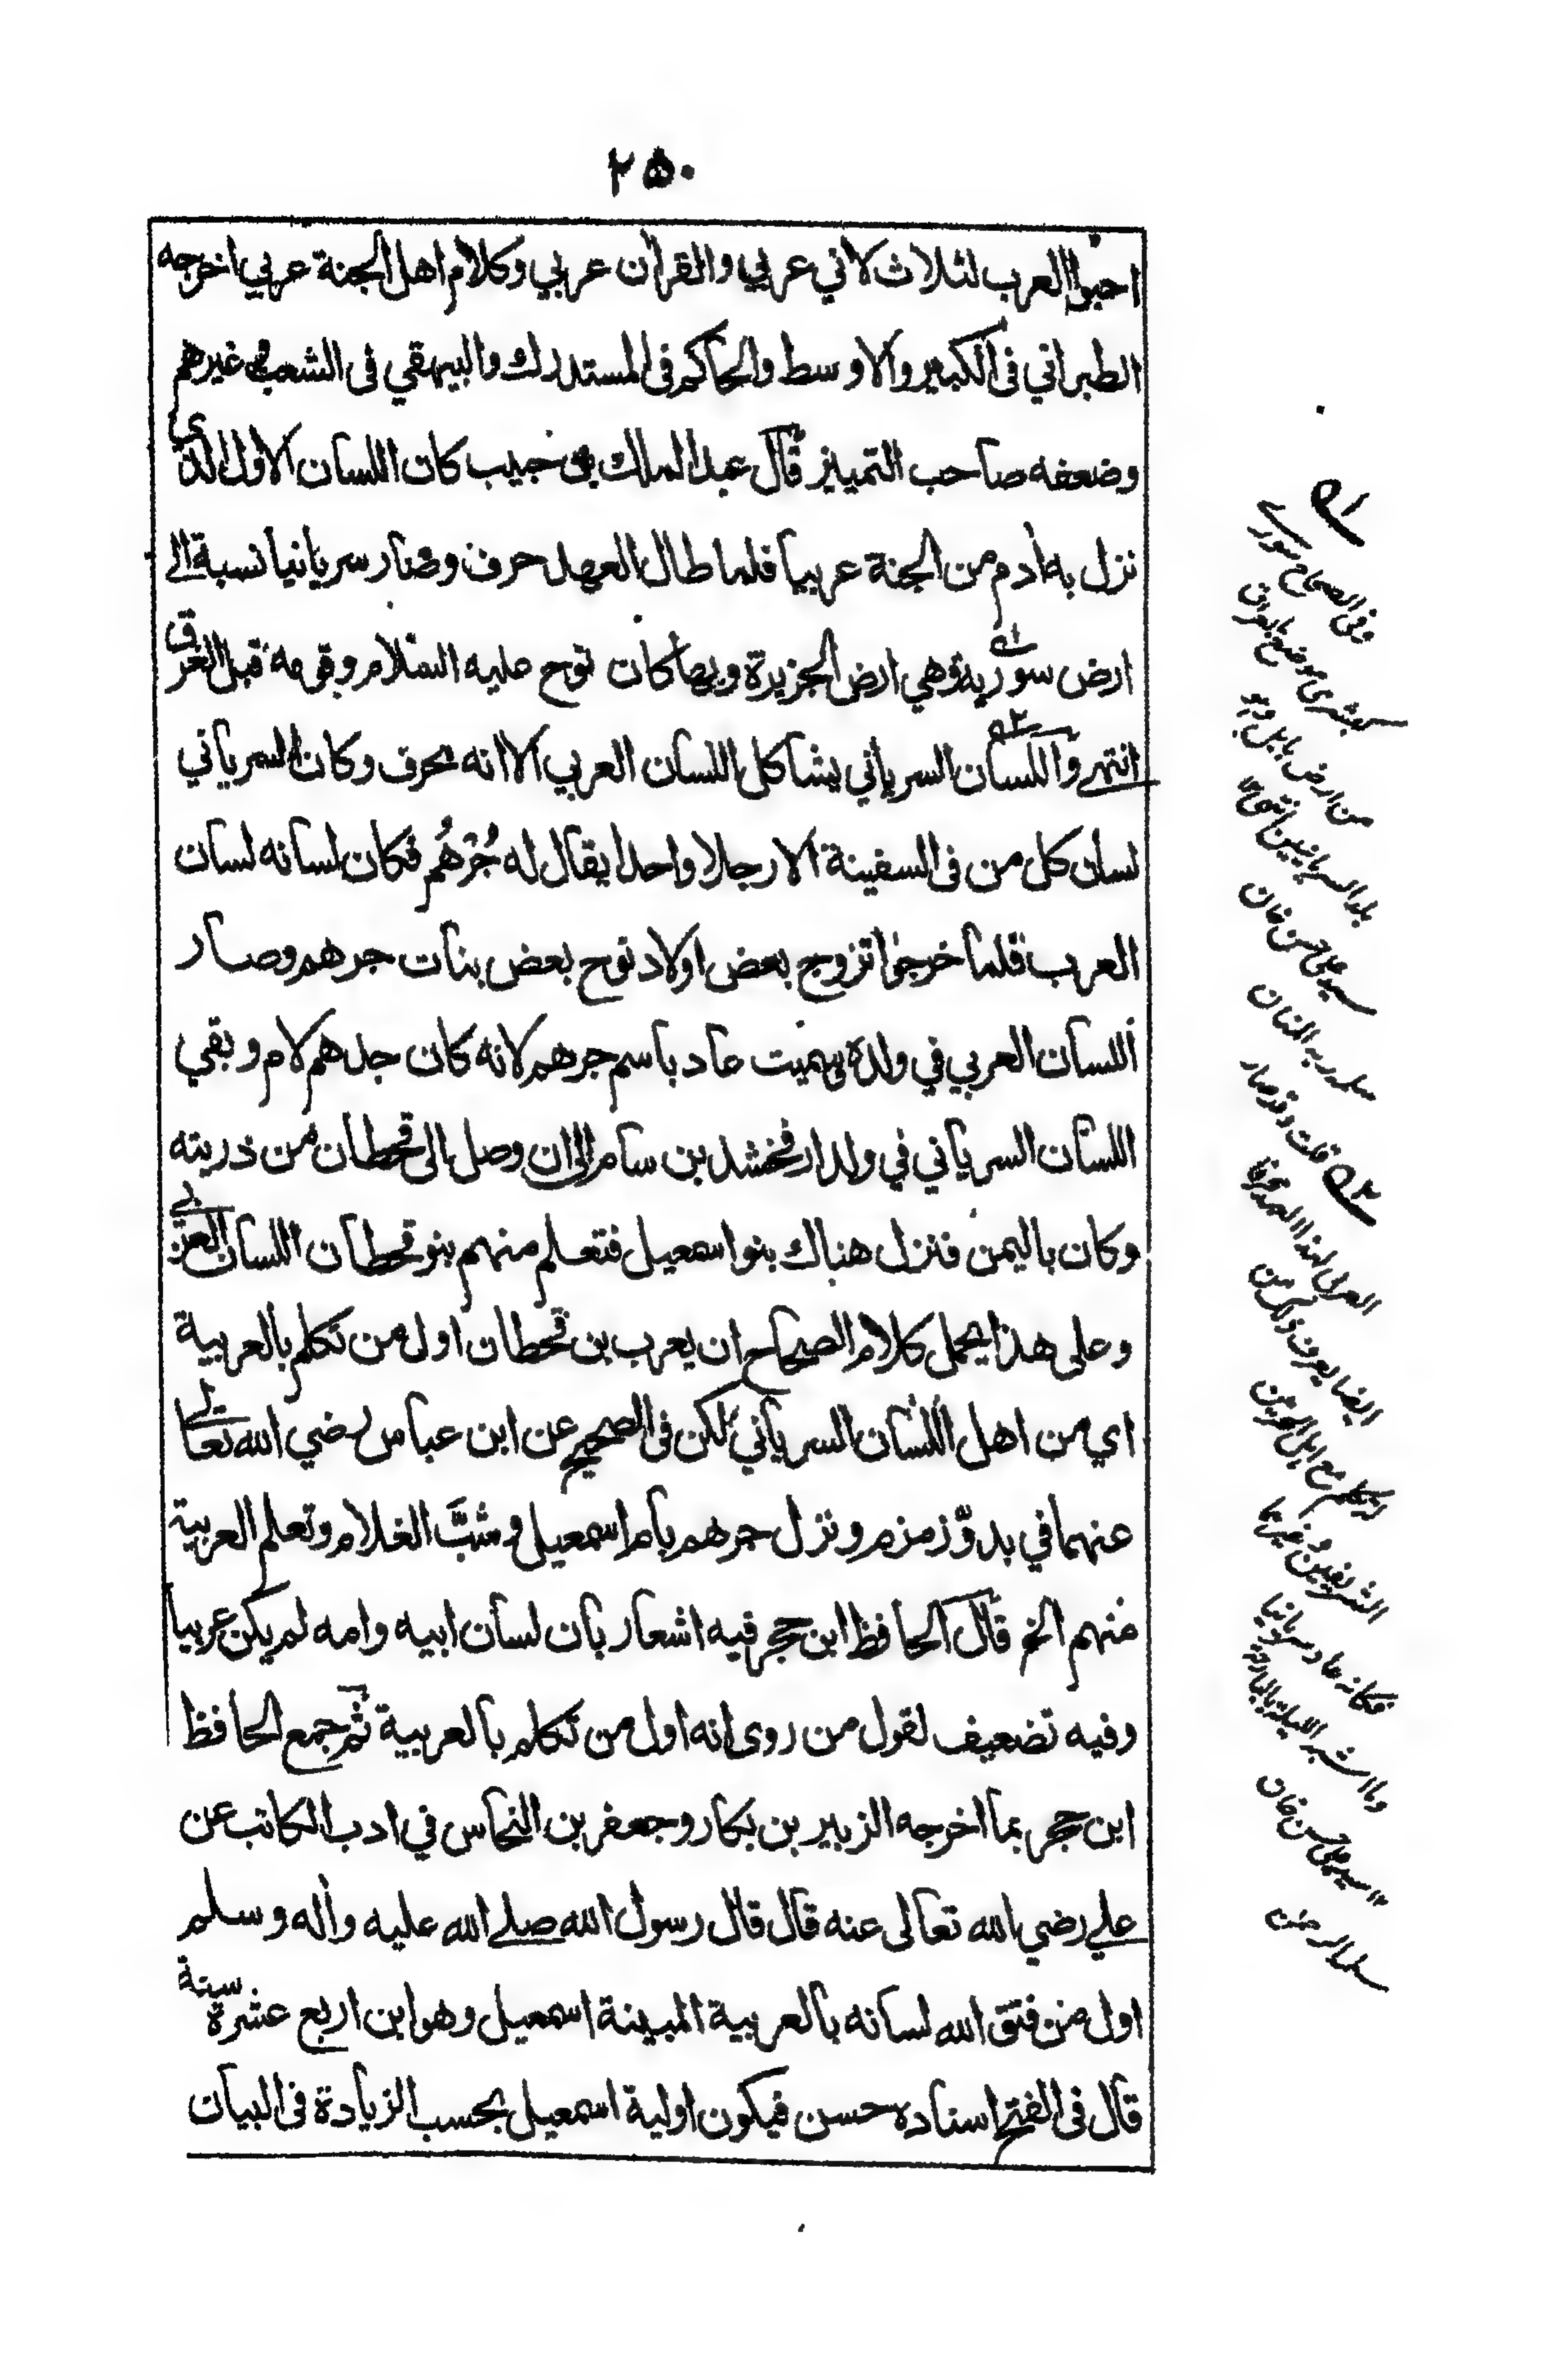 ٢٥٠
احبوا العرب لثلاث لاني عربي والقرأن عربي وكلام اهل الجنة عربي اخرجه
الطبراني فى الكبير والاوسط والحاكم فى المستدرك والبيهقي فى الشعب وغيرهم
وضعفه صاحب التمييز قال عبد الملك بن حبيب كان اللسان الاول الذي
نزل به أدم من الجنة عربيا فلما طال العهد حرف وصار سريانيا نسبة الى
ارض سورية وهي ارض الجزيرة وبها كان نوح عليه السلام وقومه قبل الغرق
انتهى واللسان السرياني يشاكل اللسان العربي الا انه محرف وكان السرياني
لسان كل من فى السفينة الا رجلا واحدا يقال له جُرْهُم فكان لسانه لسان
العرب فلما خرجوا تزوج بعض اولاد نوح بعض بنات جرهم وصار
اللسان العربي في ولده وسميت عاد باسم جرهم لانه كان جدهم لام وبقي
اللسان السرياني في ولد ارفخشد بن سام الى ان وصل الى قحطان من ذريته
وكان باليمن فنزل هناك بنو اسمعيل فتعلم منهم بنو قحطان اللسان العربي
وعلى هذا يحمل كلام الصحاح ان يعرب بن قحطان اول من تكلم بالعربية
اي من اهل اللسان السرياني لكن فى الصحيح عن ابن عباس رضي الله تعالى
عنهما في بدوّ زمزم ونزل جرهم بام اسمعيل وشبَّ الغلام وتعلم العربية
منهم الخ قال الحافظ ابن حجر فيه اشعار بان لسان ابيه وامه لم يكن عربيا
وفيه تضعيف لقول من روى انه اول من تكلم بالعربية ثم جمع الحافظ
ابن حجر بما اخرجه الزبير بن بكار وجعفر بن النحاس في ادب الكاتب عن
علي رضي الله تعالى عنه قال قال رسول الله صلى الله عليه وأله وسلم
اول من فتق الله لسانه بالعربية المبينة اسمعيل وهو ابن اربع عشرة سنة
قال فى الفتح اسناده حسن فيكون اولية اسمعيل بحسب الزيادة فى البيان
وفى الصحاح سورى
كبشرى موضع بالعراق
من ارض بابل وهو
بلد السريانيين انتهى
سيد على حسن خان
سلمه ربه المنان
قلت وقد صار
ايضا يعرف ذلك من
الشريفين وغيرهما
سيد على حسن خان
سلمه الرحمن